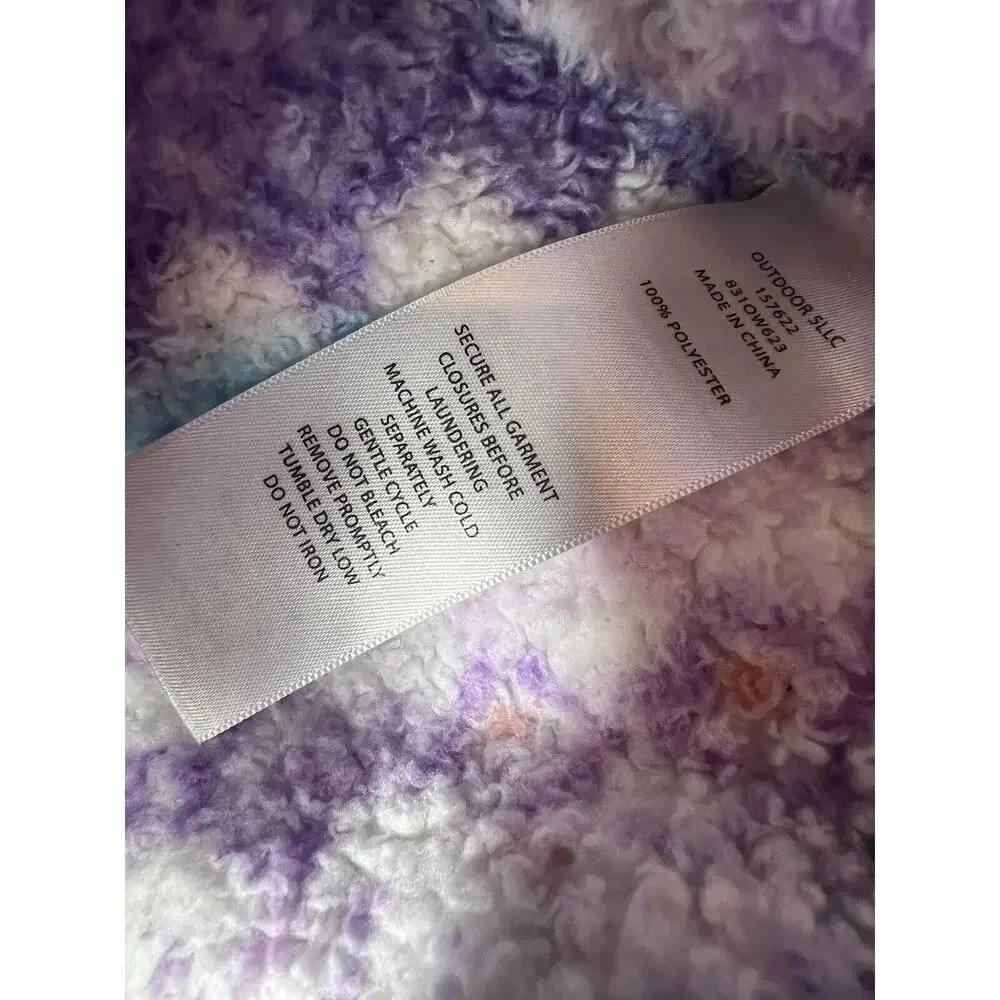 OUTDOOR 5LLC
157622
831OW623
MADE IN CHINA
100% POLYESTER
SECURE ALL GARMENT
CLOSURES BEFORE
LAUNDERING
MACHINE WASH COLD
SEPARATELY
GENTLE CYCLE
DO NOT BLEACH
REMOVE PROMPTLY
TUMBLE DRY LOW
DO NOT IRON